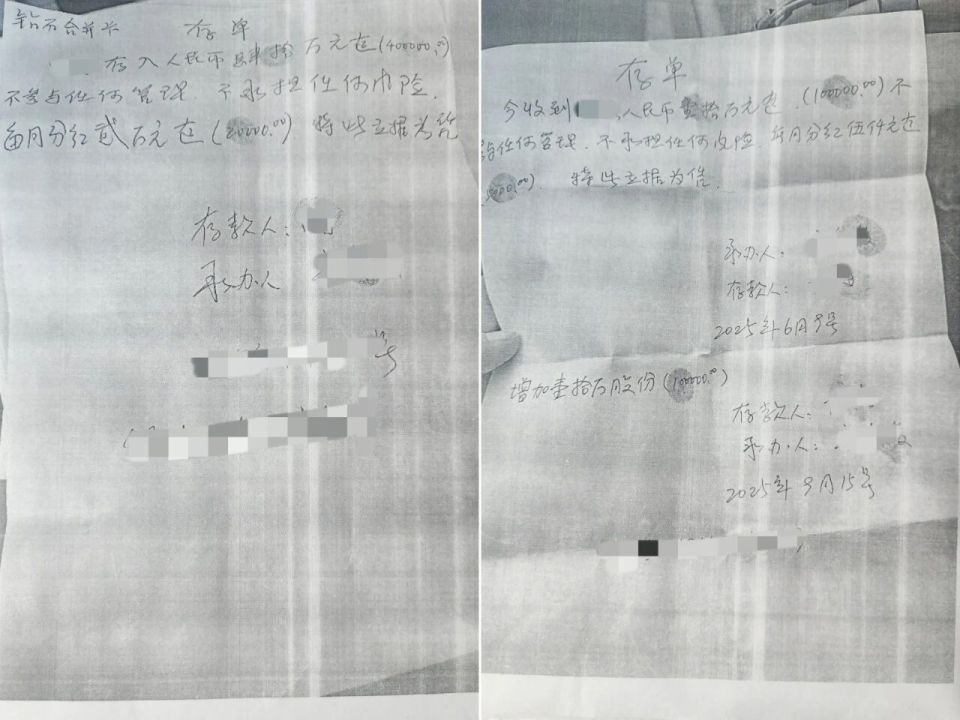 钻石合并卡 存单
存入人民币肆拾万元正(400000.00)
不参与任何管理 不承担任何风险.
每月分红贰万元正(20000.00) 特此立据为凭
存款人:
承办人
号
存单
今收到 人民币壹拾万元正.(100000.00)不
与任何管理.不承担任何风险.每月分红伍仟元正
5000.00) 特此立据为凭.
承办人:
存款人:
2025年6月9号
增加壹拾万股份(100000.00)
存款人:
承办人:
2025年9月15号